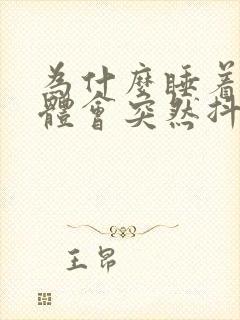 為什麼睡着
體會突然抖
王昂